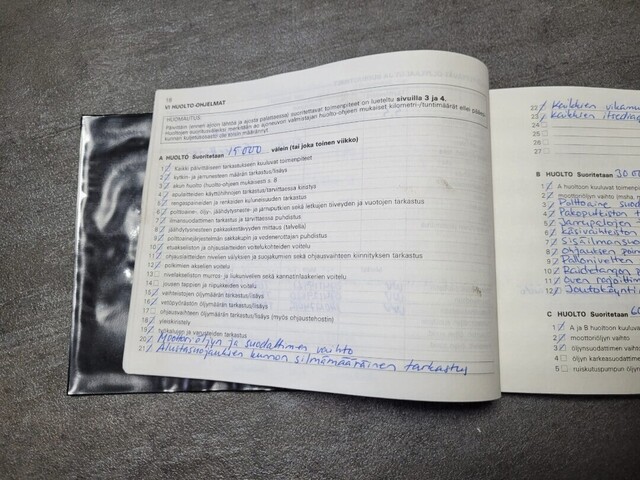 18
VI HUOLTO-OHJELMAT
HUOMAUTUS:
Päivittäin ennen ajoon lähtöä ja ajosta palatessa) suoritettavat toimenpiteet on lueteltu sivuilla 3 ja 4.
Huoltojen suoritusväleiksi merkitään ao ajoneuvon valmistajan huolto-ohjeen mukaiset kilometri-/tuntimäärät ellei pääesi-
kunnan kuljetusosasto ole toisin määrännyt
A HUOLTO Suoritetaan 15000 välein (tai joka toinen viikko)
1 Kaikki päivittäiseen tarkastukseen kuuluvat toimenpiteet
2 kytkin- ja jarrunesteen määrän tarkastus/lisäys
3 akun huolto (huolto-ohjeen mukaisesti s. 8
4 apulaitteiden käyttöhihnojen tarkastus/tarvittaessa kiristys
5 rengaspaineiden ja renkaiden kuluneisuuden tarkastus
6 polttoaine-, öljy-, jäähdytysneste- ja jarruputkien sekä letkujen tiiveyden ja vuotojen tarkastus
7 ilmansuodattimen tarkastus ja tarvittaessa puhdistus
8 jäähdytysnesteen pakkaskestävyyden mittaus (talvella)
9 polttoainejärjestelmän sakkakupin ja vedenerottajan puhdistus
10 etuakseliston ja ohjauslaitteiden voitelukohteiden voitelu
11 ohjauslaitteiden nivelien välyksien ja suojakumien sekä ohjausvaihteen kiinnityksen tarkastus
12 polkimien akselien voitelu
13 nivelakseliston murros- ja liukunivelien sekä kannatinlaakerien voitelu
14 jousen tappien ja ripukkeiden voitelu
15 vaihteistojen öljymäärän tarkastus/lisäys
16 vetöpyörästön öljymäärän tarkastus/lisäys
17 ohjausvaihteen öljymäärän tarkastus/lisäys (myös ohjaustehostin)
18 yleiskiristely
19 työkalujen ja varusteiden tarkastus
20 Moottoriöljyn ja suodattimen vaihto
21 Alustasuojauksen kunnon silmämääräinen tarkastus
22 Kaikkien
23 kaikkien
24
25
26
27
B HUOLTO Suoritetaan 30 00
1 A huoltoon kuuluvat toimenpi
2 moottoriöljyn vaihto
3 Polttoaine suod
4 Pakoputkiston
5 Jarrupalojen
6 Käsivaihteiston
7 Sisäilmansu
8 Ohjauksen
9 Pallonivelten
10 Raidetangon
11 Ovien
12
C HUOLTO Suoritetaan
1 A ja B huoltoon kuuluva
2 moottoriöljyn vaihto
3 öljynsuodattimen vaihto
4 öljyn karkeasuodattimen
5 ruiskutuspumpun öljyn